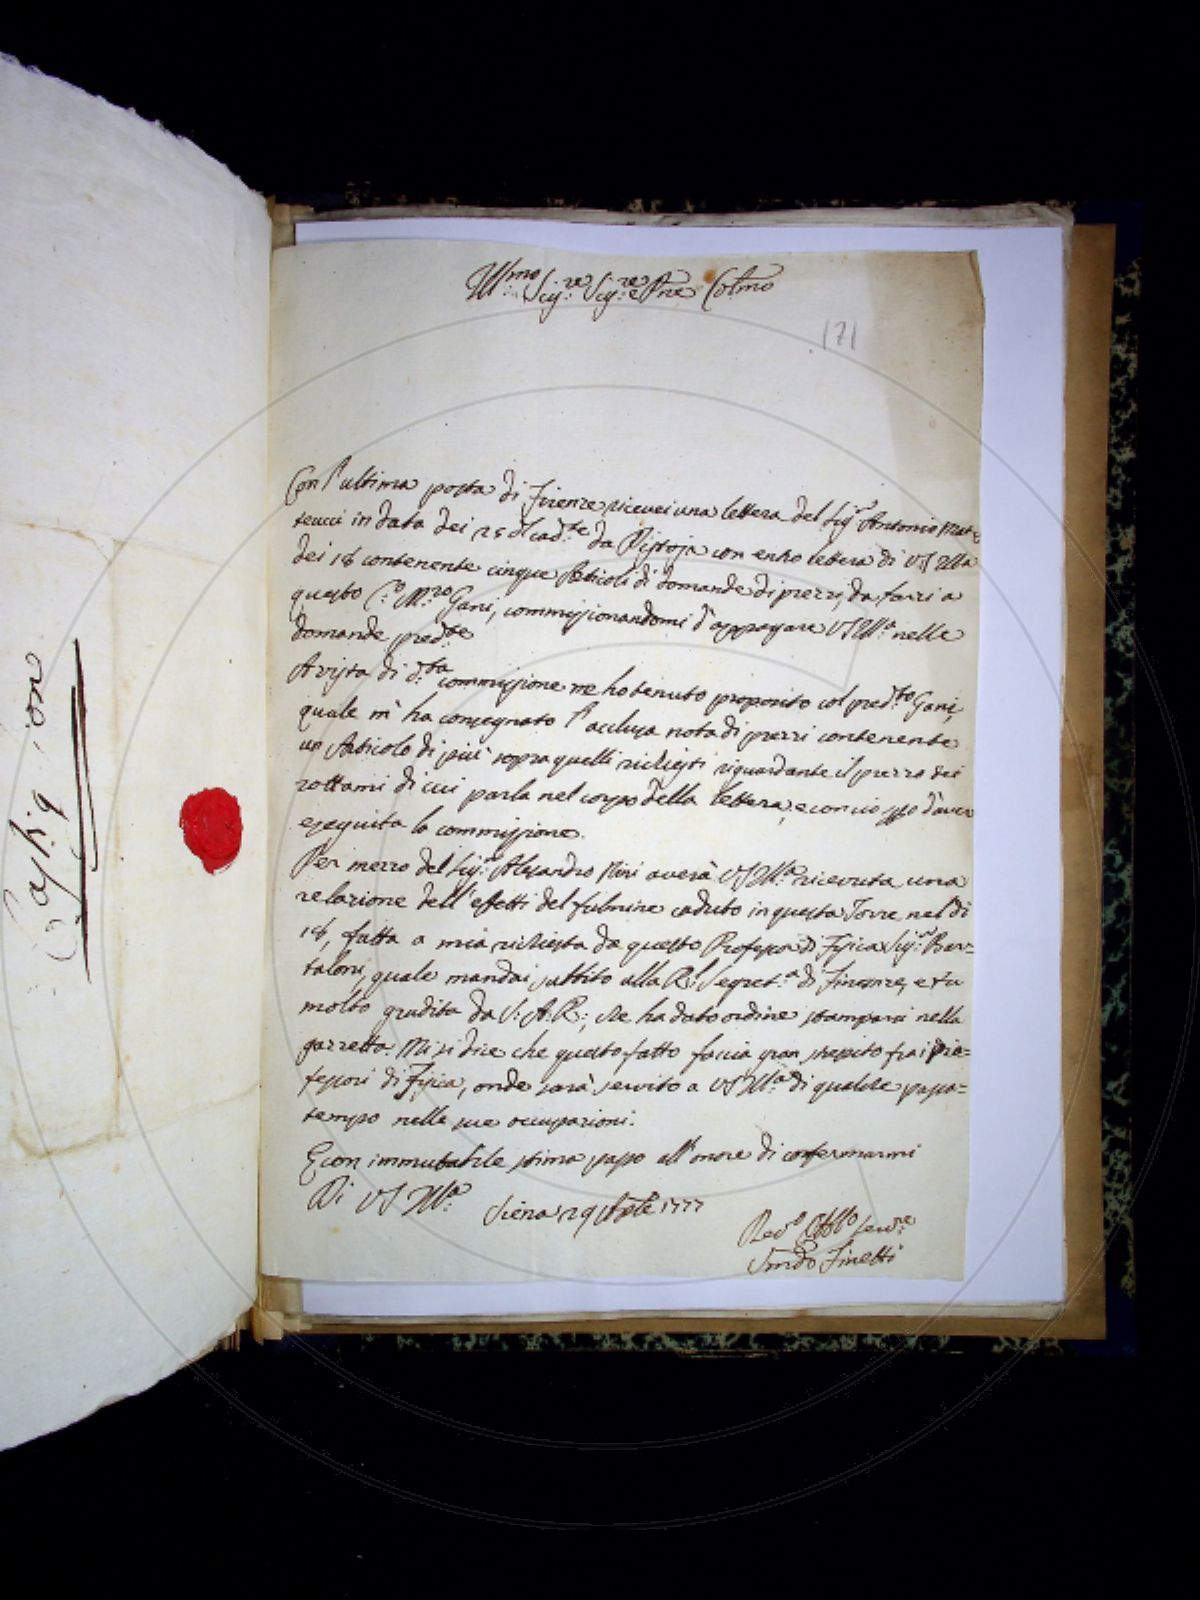 Ill:mo Sig:re Sig:re e Pne Col:mo
171
Con l'ultima posta di Firenze ricevei una lettera del Sig:r Antonio Mat=
teucci in data dei 25 del cad:te da Pistoja con entro lettera di VS Illa
dei 18 contenente cinque Articoli di domande di prezzi, da farsi a
questo C:o M:ro Gani, commissionandomi d'appagare VS Ill:a nelle
domande pred:te
A vista di d:ta commissione me ho tenuto proposito col pred:to Gani,
quale m'ha consegnato l'acclusa nota di prezzi contenente
un Articolo di più sopra quelli richiesti riguardante il prezzo dei
rottami di cui parla nel corpo della lettera, e con ciò spo d'aver
eseguita la commissione.
Per mezzo del Sig:r Alessandro Nini averà VS Ill:a ricevuta una
relazione dell'effetti del fulmine caduto in questa Torre nel dì
18, fatta a mia richiesta da questo Professor di Fisica Sig:r Bar=
taloni, quale mandai subbito alla R:l Segret:a di Firenze, e fu
molto gradita da S: A: R:, che ha dato ordine stamparsi nella
gazzetta. Mi si dice che questo fatto faccia gran strepito fra i Pro=
fessori di Fisica, onde sarà servito a VS Ill:a di qualche passa=
tempo nelle sue occupazioni.
E con immutabile stima passo all'onore di confermarmi
Di VS Ill:a
Siena 29 Aple 1777
Dev:o Obbl:o Serv:re
Finetti